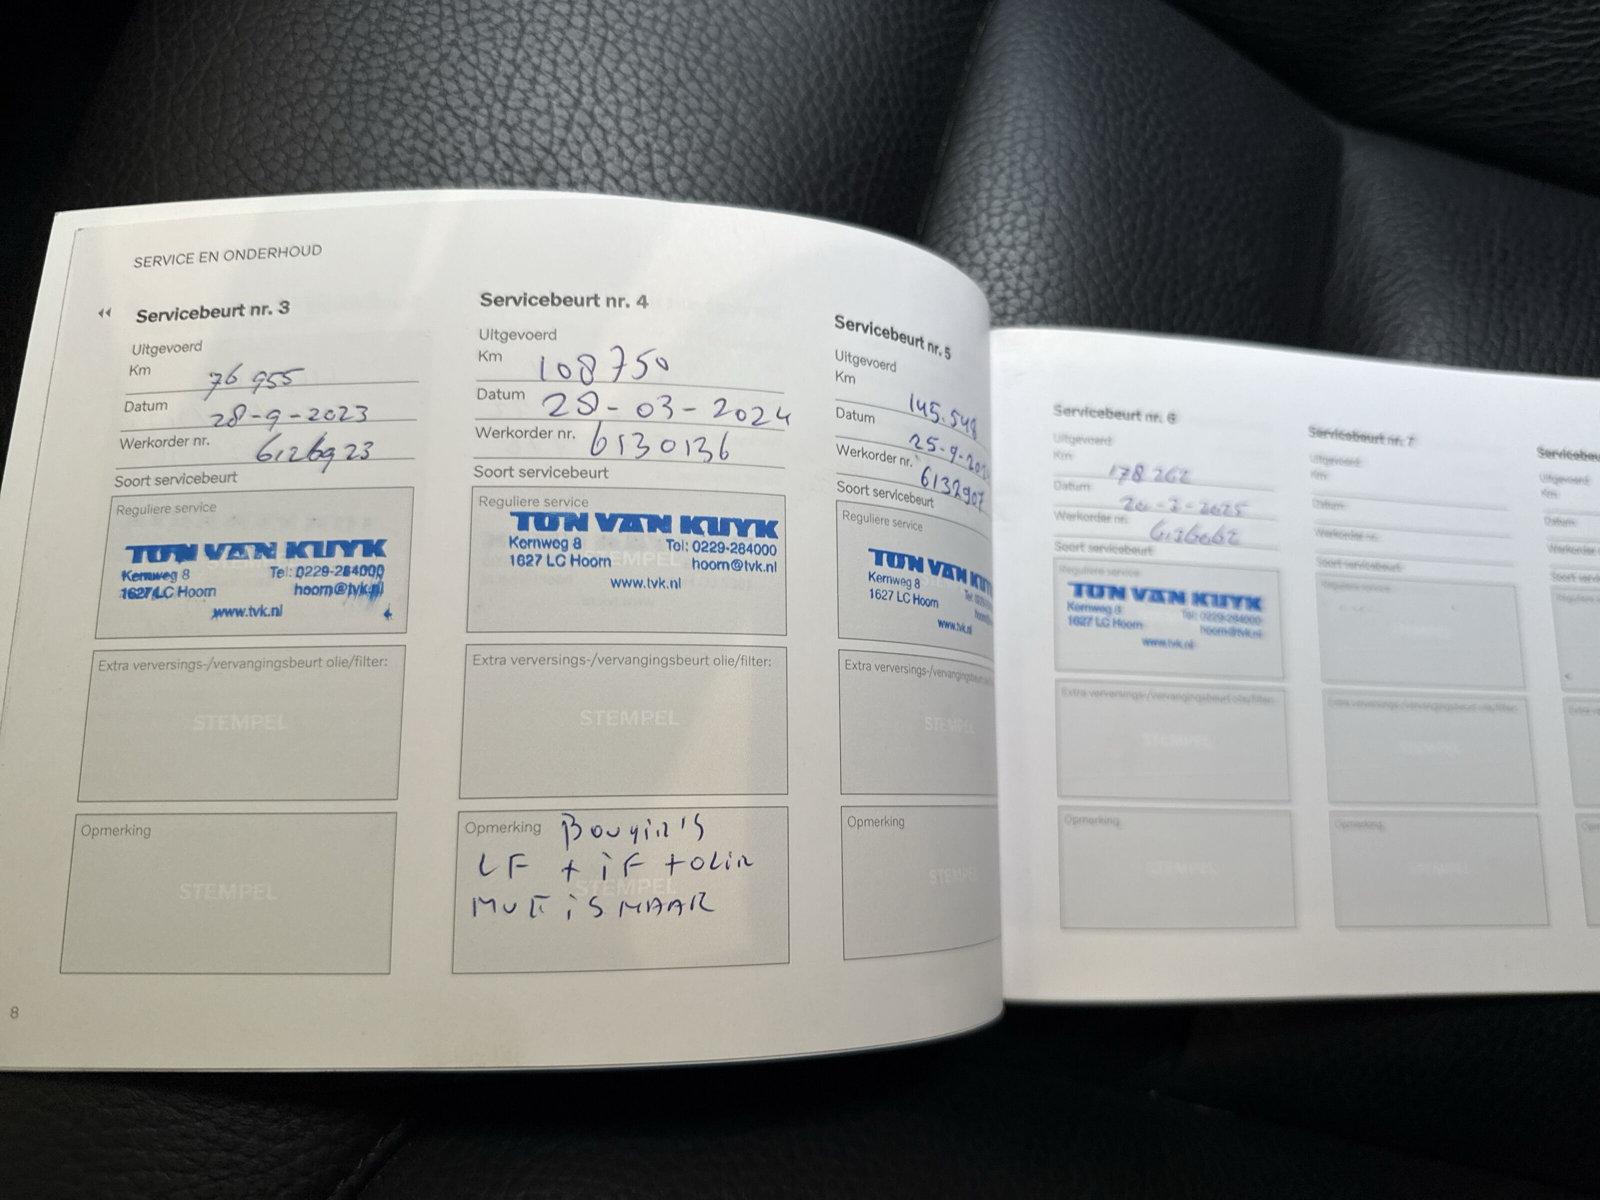 SERVICE EN ONDERHOUD
Servicebeurt nr. 3
Uitgevoerd
Km 76 955
Datum 28-9-2023
Werkorder nr. 6126923
Soort servicebeurt
Reguliere service
TON VAN KUYK
Kernweg 8 Tel: 0229-284000
1627 LC Hoorn hoorn@tvk.nl
www.tvk.nl
Extra verversings-/vervangingsbeurt olie/filter:
STEMPEL
Opmerking
STEMPEL
8
Servicebeurt nr. 4
Uitgevoerd
Km 108750
Datum 28-03-2024
Werkorder nr. 6130136
Soort servicebeurt
Reguliere service
TON VAN KUYK
Kernweg 8 Tel: 0229-284000
1627 LC Hoorn hoorn@tvk.nl
www.tvk.nl
Extra verversings-/vervangingsbeurt olie/filter:
STEMPEL
Opmerking Bougie's
LF + iF + olie
STEMPEL
Servicebeurt nr. 5
Uitgevoerd
Km 145.548
Datum 25-9-202
Werkorder nr. 6132907
Soort servicebeurt
Reguliere service
TON VAN KUYK
Kernweg 8
1627 LC Hoorn
www.tvk.nl
Extra verversings-/vervangingsbeurt
STEMPEL
Opmerking
STEMPEL
Servicebeurt nr. 6
Uitgevoerd
Km 178 262
Datum
Werkorder nr.
Soort servicebeurt
Reguliere service
TON VAN KUYK
Kernweg 8 Tel: 0229-284000
1627 LC Hoorn hoorn@tvk.nl
www.tvk.nl
Extra verversings-/vervangingsbeurt olie/filter:
STEMPEL
Opmerking
STEMPEL
Servicebeurt nr. 7
Uitgevoerd
Km
Datum
Werkorder nr.
Soort servicebeurt
Reguliere service
Extra verversings-/vervangingsbeurt olie/filter:
STEMPEL
Opmerking
STEMPEL
Servicebeu
Uitgevoerd
Km
Datum
Werkorder nr.